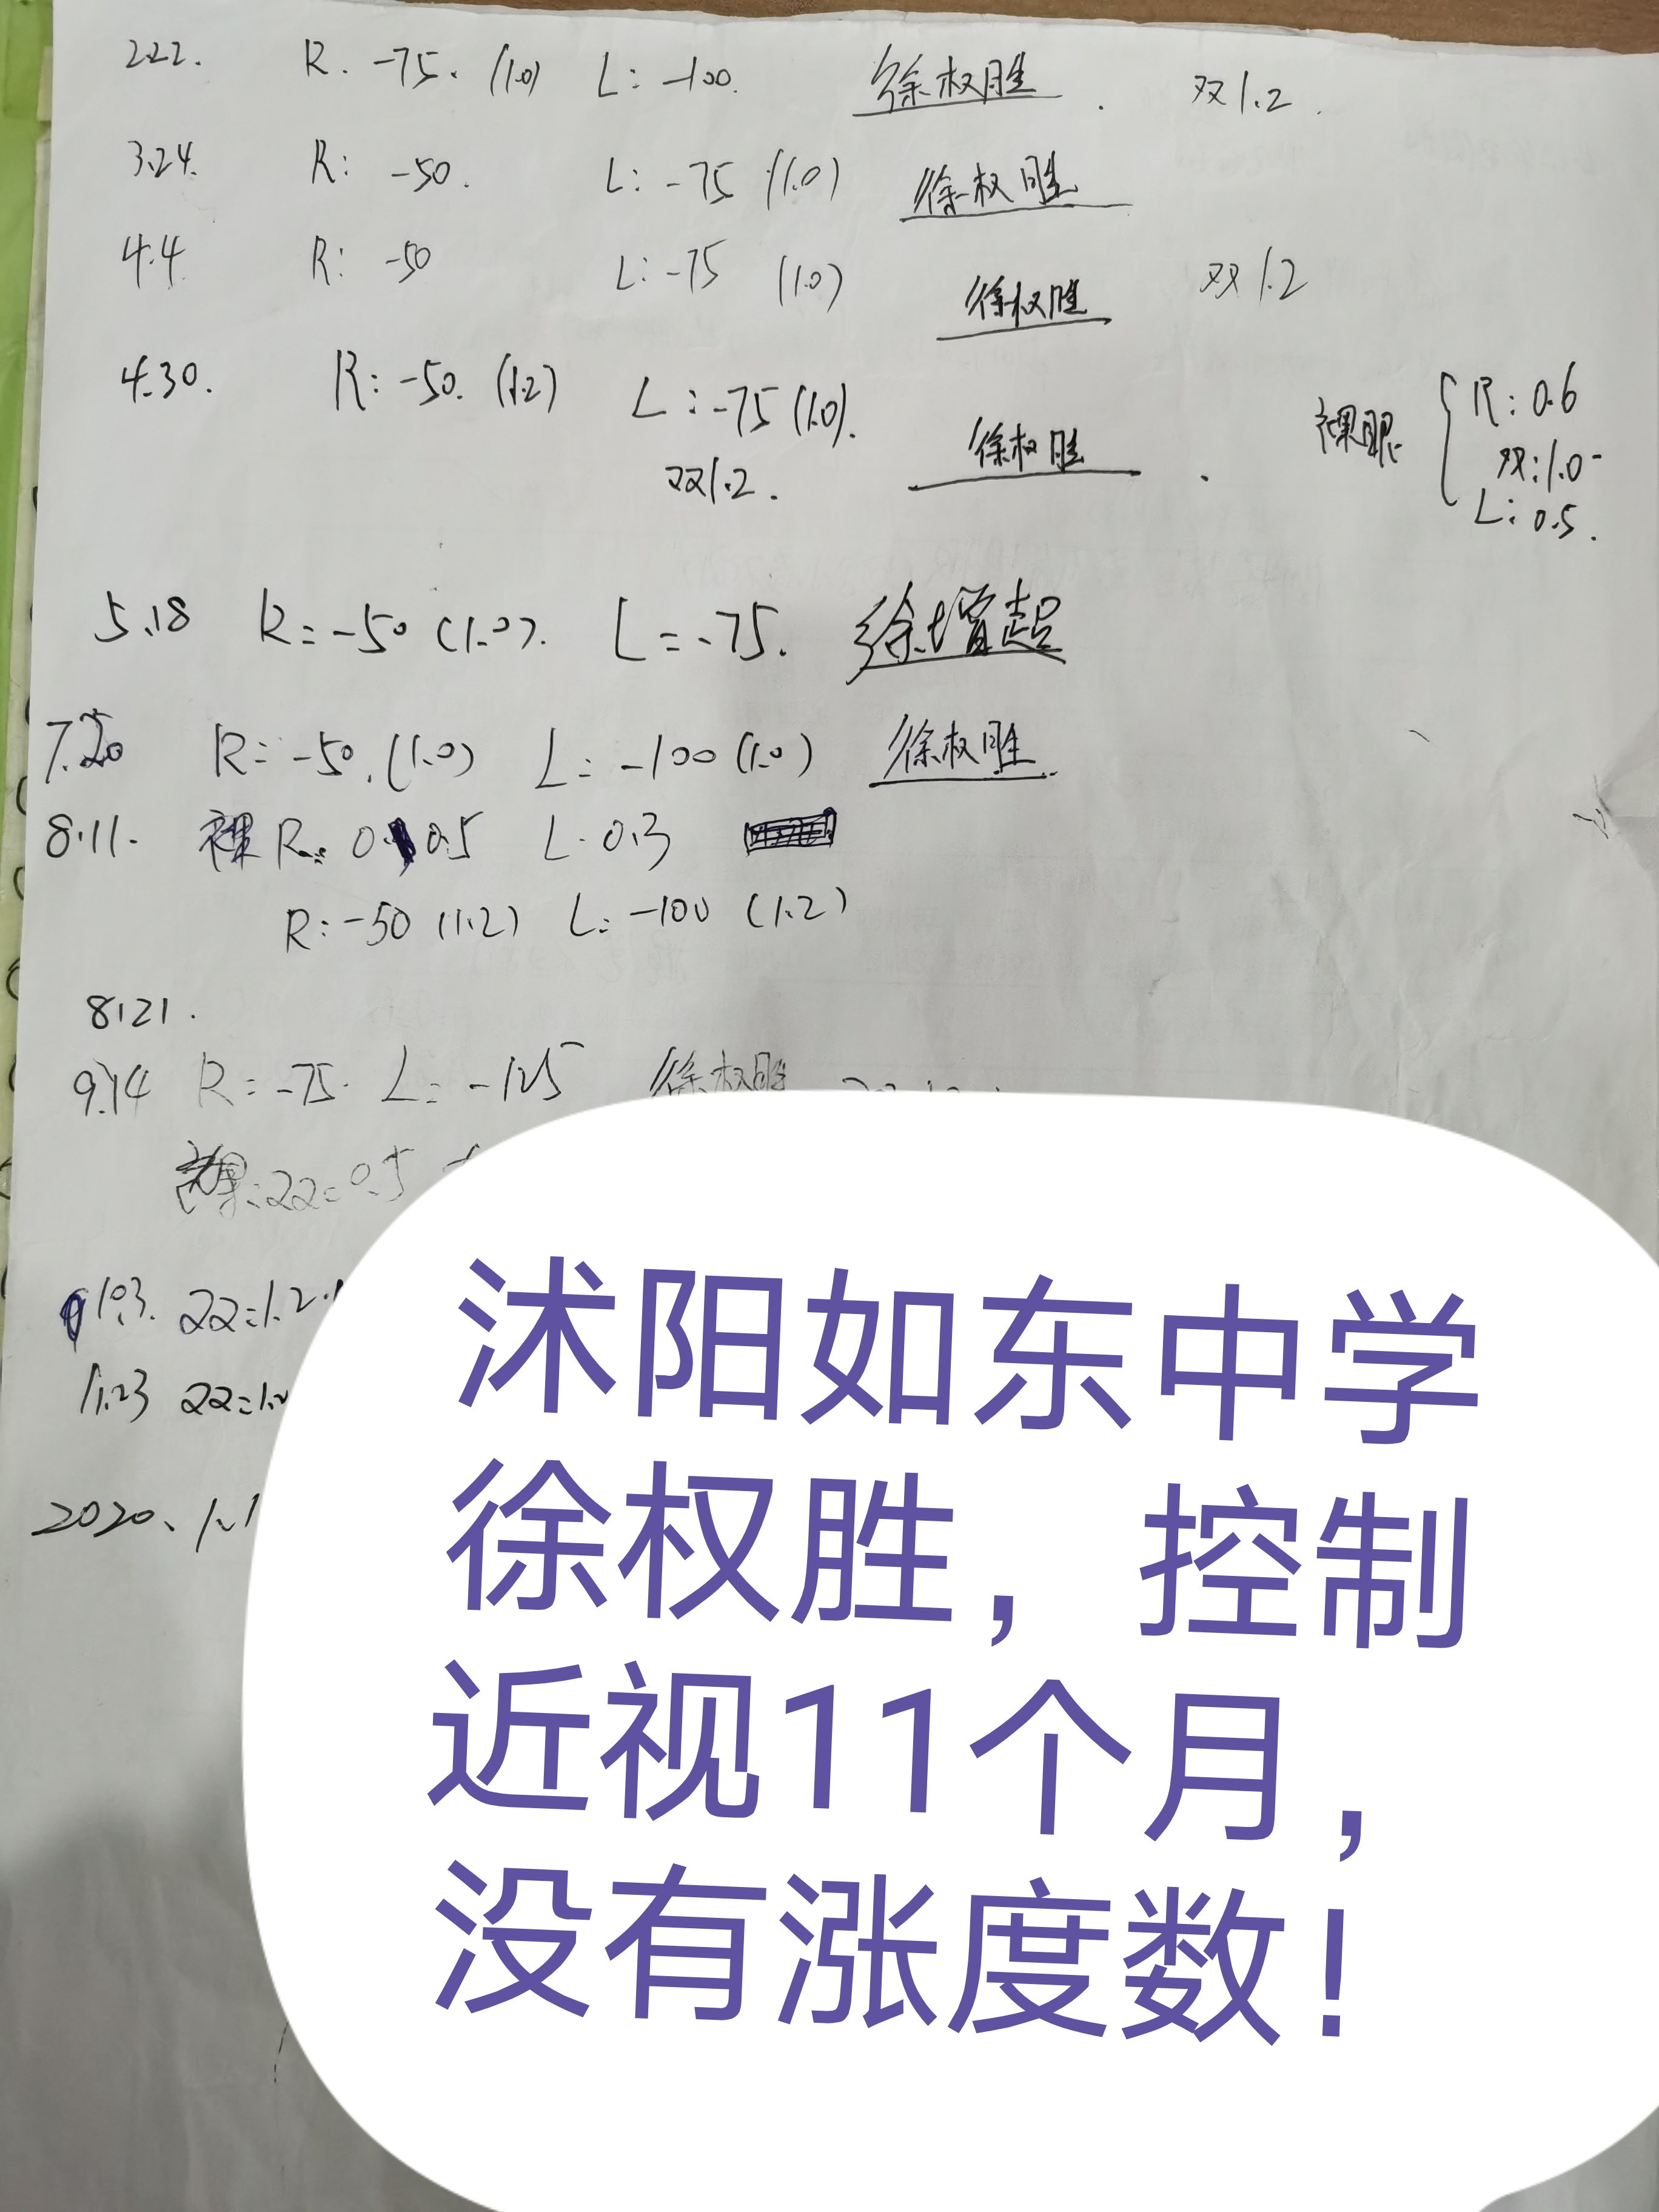 2.22. R. -75. (1.0) L: -100. 徐权胜. 双1.2.
3.24. R: -50. L: -75 (1.0) 徐权胜
4.4 R: -50 L: -75 (1.0) 徐权胜 双1.2
4.30. R: -50. (1.2) L: -75 (1.0). 徐权胜.
双1.2.
裸眼 R: 0.6
双: 1.0-
L: 0.5.
5.18 R= -50 (1.0). L= -75. 徐增起
7.20 R= -50. (1.0) L= -100 (1.0) 徐权胜.
8.11. 裸 R: 0.5 L. 0.3
R: -50 (1.2) L: -100 (1.2)
8.21.
9.14 R= -75. L= -125 徐权胜
裸: 双=0.5
10.3. 双=1.2
11.23 双=1.
2020、1.1
沭阳如东中学
徐权胜，控制
近视11个月，
没有涨度数！